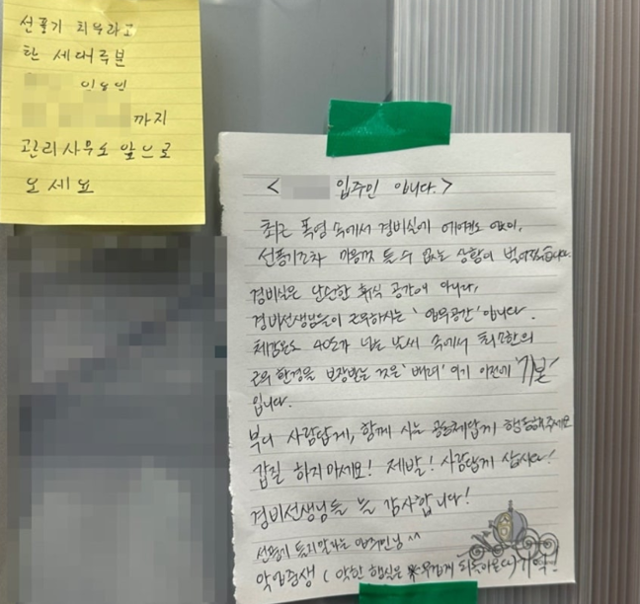 선풍기 치우라고
한 세대주분
까지
관리사무소 앞으로
오세요
< 입주민 입니다.>
최근 폭염 속에서 경비실에 에어컨도 없이,
선풍기조차 마음껏 틀 수 없는 상황이 벌어졌습니다.
경비실은 단순한 휴식 공간이 아니라,
경비선생님들이 근무하시는 '업무공간'입니다.
체감온도 40도가 넘는 날씨 속에서 최소한의
근무 환경을 보장받는 것은 '배려'이기 이전에 '기본'
입니다.
부디 사람답게, 함께 사는 공동체답게 행동해주세요
갑질 하지마세요! 제발! 사람답게 삽시다!
경비선생님들 늘 감사합니다!
선풍기 틀지말라는 입주민님 ^^
인과응생 ( 악한 행실은